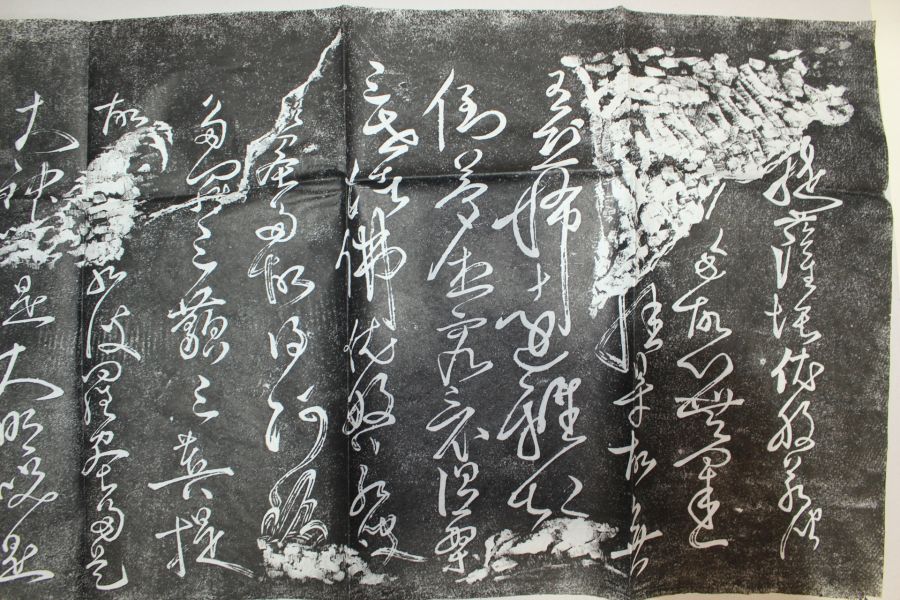 提薩埵依般若波
多故心無罣礙
罣礙故無
有恐怖遠離顛
倒夢想究竟涅槃
三世諸佛依般若波
羅蜜多故得阿耨
多羅三藐三菩提
故 若波羅蜜多是
大神 是大明咒是